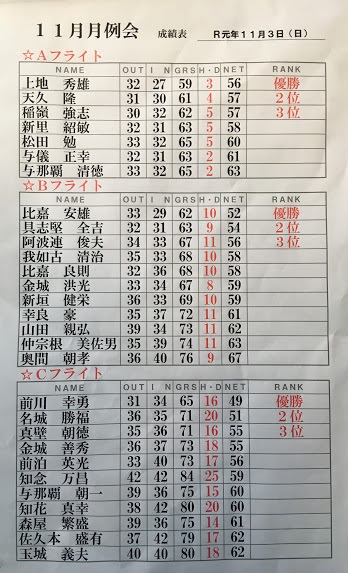 １１月月例会 成績表 R元年１１月３日（日）
☆Aフライト
NAME OUT I N GRS H・D NET RANK
上地 秀雄 32 27 59 3 56 優勝
天久 隆 31 30 61 4 57 ２位
稲嶺 強志 30 32 62 5 57 ３位
新里 紹敏 32 31 63 5 58
松田 勉 33 32 65 5 60
与儀 正幸 32 31 63 2 61
与那覇 清徳 33 32 65 2 63
☆Bフライト
NAME OUT I N GRS H・D NET RANK
比嘉 安雄 33 29 62 10 52 優勝
具志堅 全吉 32 31 63 9 54 ２位
阿波連 俊夫 34 33 67 11 56 ３位
我如古 清治 35 33 68 10 58
比嘉 良則 32 36 68 10 58
金城 洪光 33 34 67 8 59
新垣 健栄 36 33 69 10 59
幸良 豪 35 37 72 11 61
山田 親弘 39 34 73 11 62
仲宗根 美佐男 35 39 74 11 63
奥間 朝孝 36 40 76 9 67
☆Cフライト
NAME OUT I N GRS H・D NET RANK
前川 幸勇 31 34 65 16 49 優勝
名城 勝福 36 35 71 20 51 ２位
真壁 朝徳 35 36 71 16 55 ３位
金城 善秀 36 37 73 18 55
前泊 英光 33 40 73 17 56
知念 万昌 42 42 84 25 59
与那覇 朝一 39 36 75 15 60
知花 真幸 38 42 80 20 60
森屋 繁盛 39 36 75 14 61
佐久本 盛有 37 42 79 17 62
玉城 義夫 40 40 80 18 62